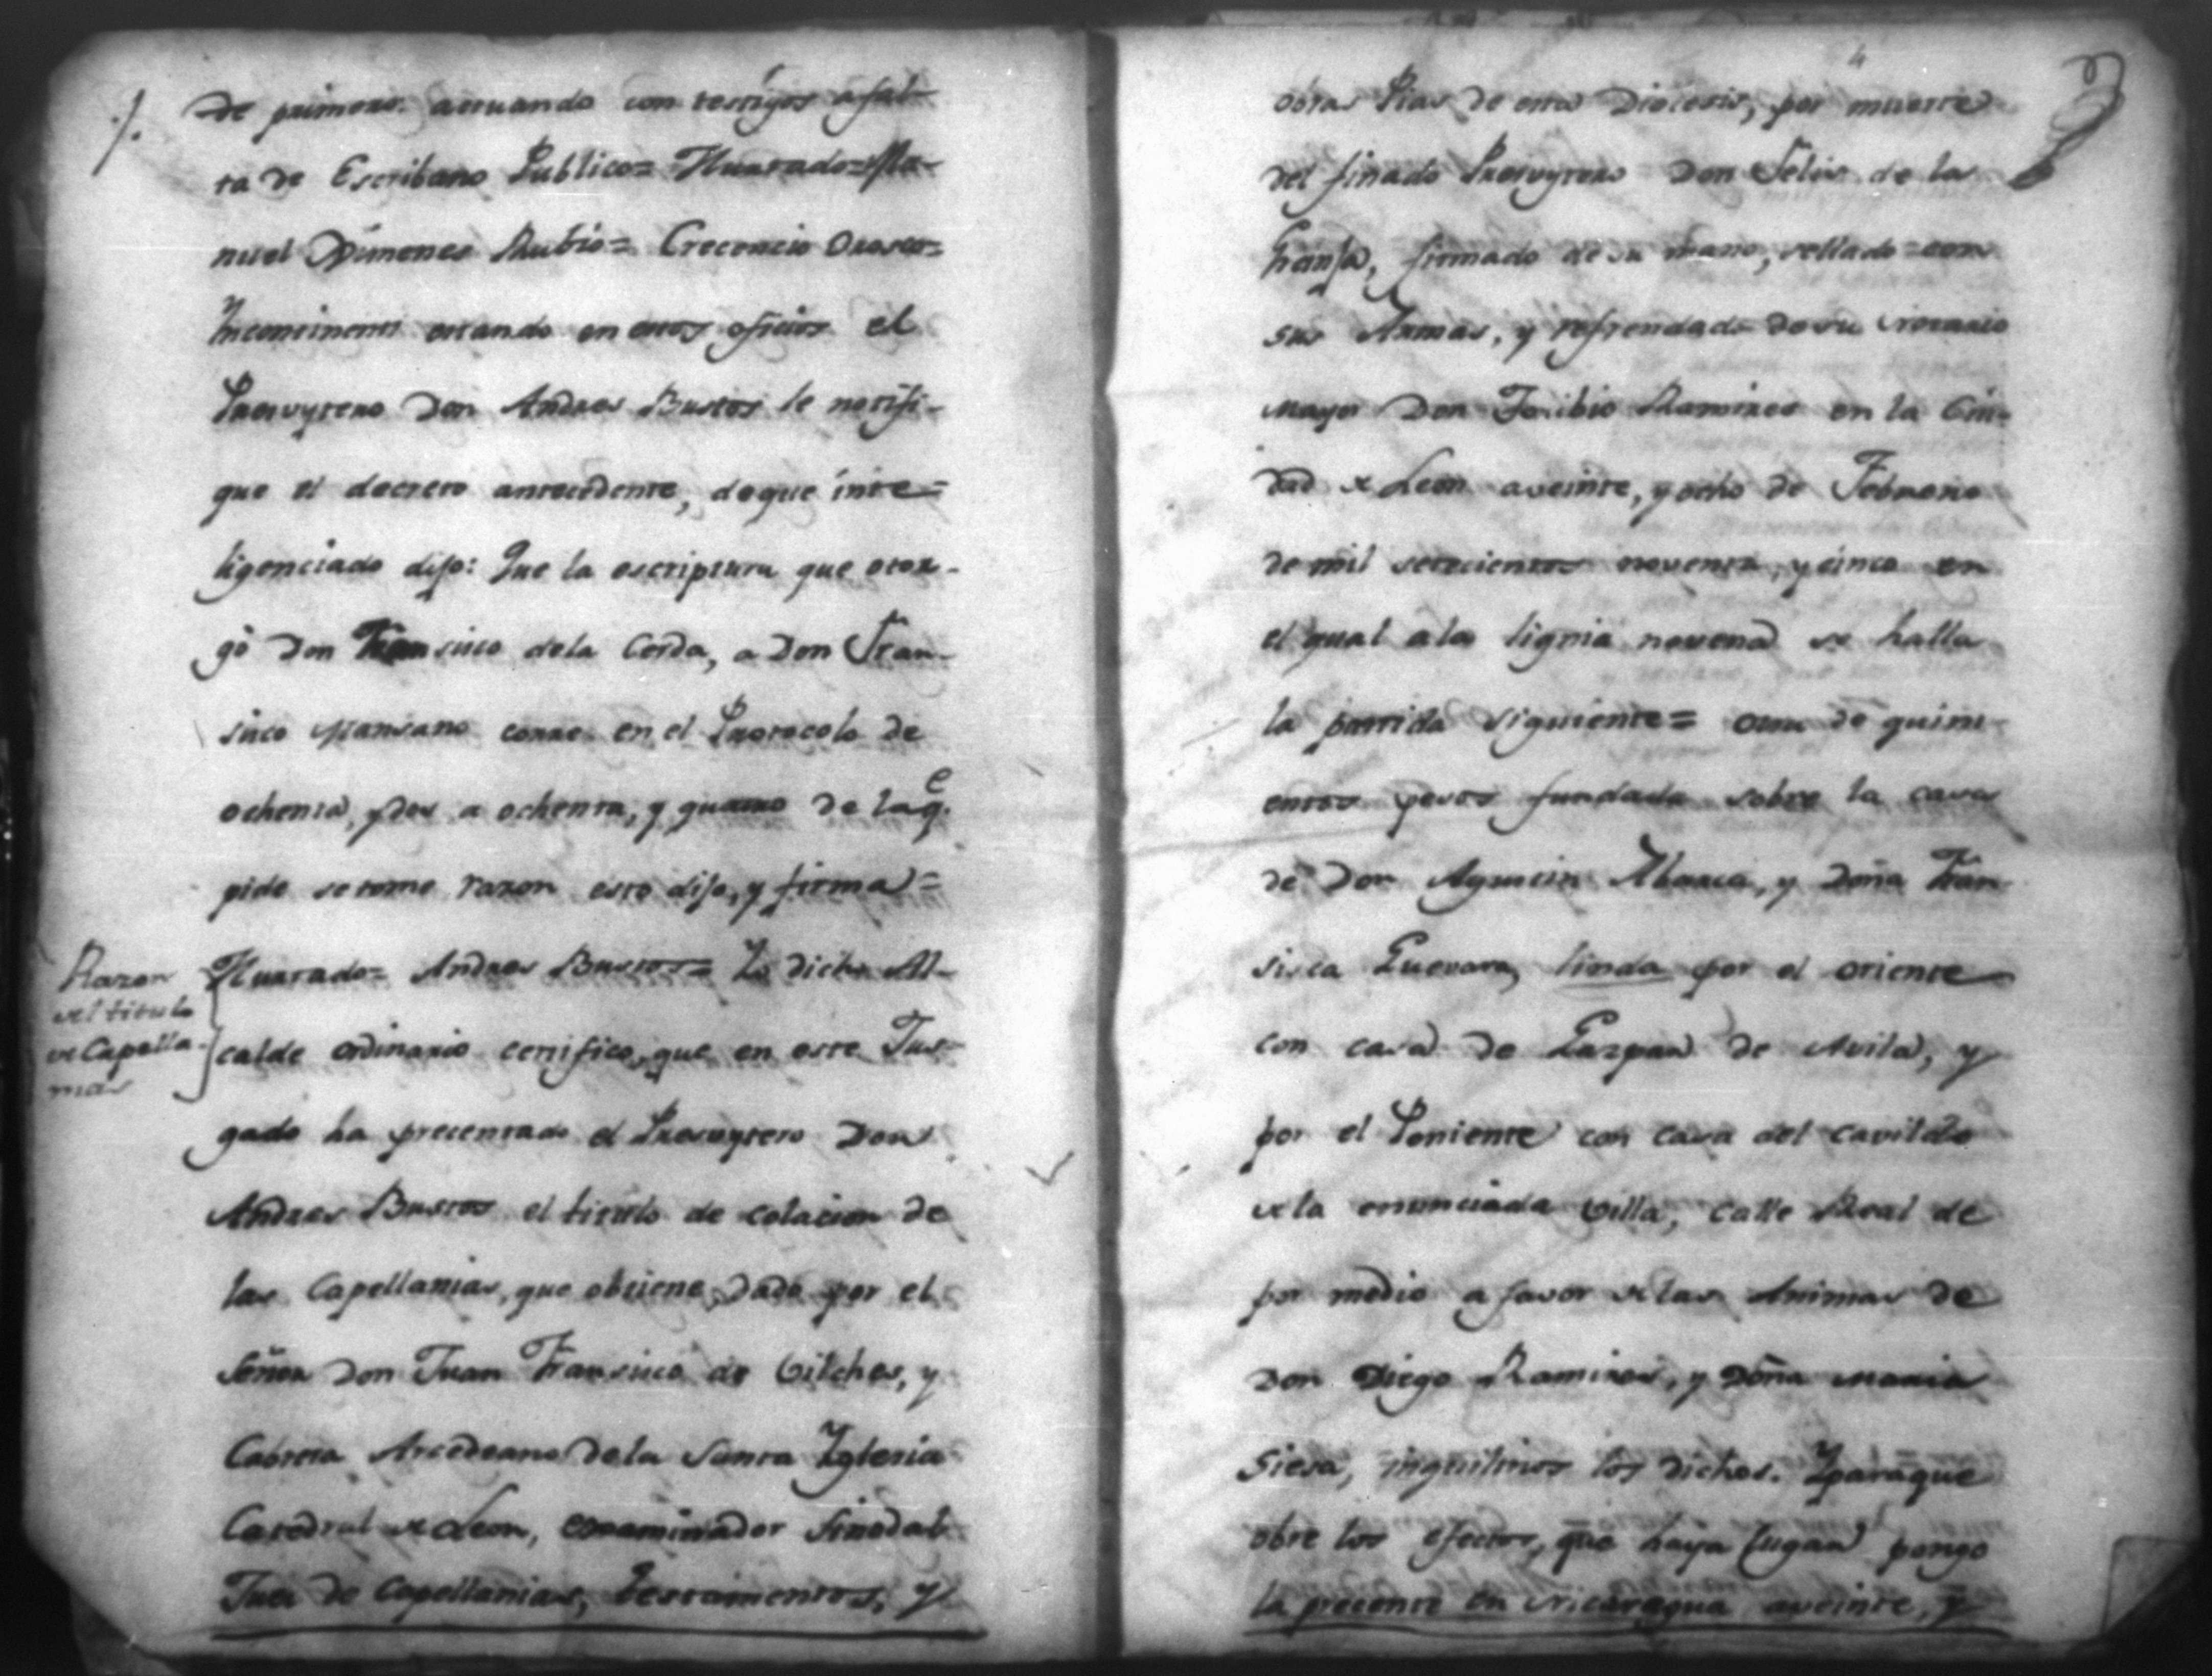 de primero. actuando con testigos afal-
ta de Escribano Publico= Hurtado= Ma-
nuel Ximenes Rubio= Crecencio Orosco=
Yncontinenti estando en estos oficios el
Presvytero Don Andres Bustos le notifi-
que el decreto antecedente, deque inte=
ligenciado dijo: Que la escriptura que otor-
gó Don Fransisco dela Cerda, a Don Fran-
sisco Mansano corre en el Protocolo de
ochenta, y dos a ochenta, y quatro de laq.e
pide setome razon esto dijo, y firma=
Razon
del titulo
de Capella-
nias
Hurtado= Andres Bustos= Yo dicho Al-
calde ordinario certifico, que en este Jus-
gado ha precentado el Presvytero Don
Andres Bustos el titulo de colacion de
las Capellanias, que obtiene, dado por el
Señor Don Juan Fransisco de Vilches, y
Cabrera Arcedeano dela Santa Yglesia
Catedral de Leon, examinador Sinodal
Juez de Capellanias, Testamentos, y
4
obras Pias de esta Diocesis, por muerte
del finado Presvytero Don Felis de la
Granja, firmado de su mano, sellado con
sus Armas, y refrendado desu Notario
mayor Don Toribio Ramires en la Ciu-
dad de Leon aveinte, y ocho de Febrero
de mil setecientos noventa, y cinco en
el qual ala lignia novena se halla
la partida siguiente= Otra de quini-
entos pesos fundada sobre la casa
de Don Agustin Abarca, y Doña Fran-
sisca Guevara, linda por el oriente
con casa de Gaspar de Avila, y
por el Poniente con casa del Cavildo
de la enunciada Villa, calle Real de
por medio a favor de las Animas de
Don Diego Ramires, y Doña Maria
Giesa, inquilinos los dichos. Yparaque
obre los efectos, que haya lugar pongo
la precente en Nicaragua aveinte, y